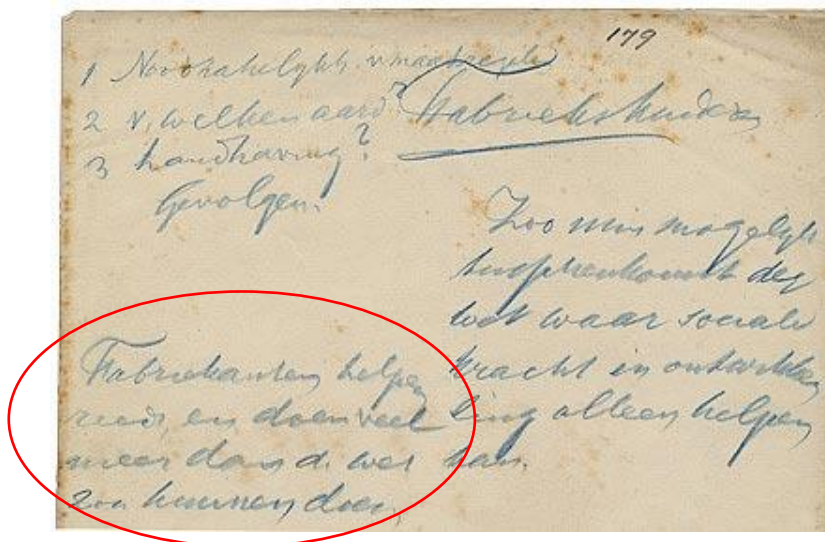 179
1 Noodzakelijkh. v. maatregelen
2 v. welken aard?
3 handhaving?
Gevolgen.
Fabriekskinderen
Zoo min mogelijk
tusschenkomst der
wet waar sociale
kracht in ontwikke
ling alleen helpen
kan.
Fabriekanten helpen
reeds en doen veel
meer dan de wet
zou kunnen doen